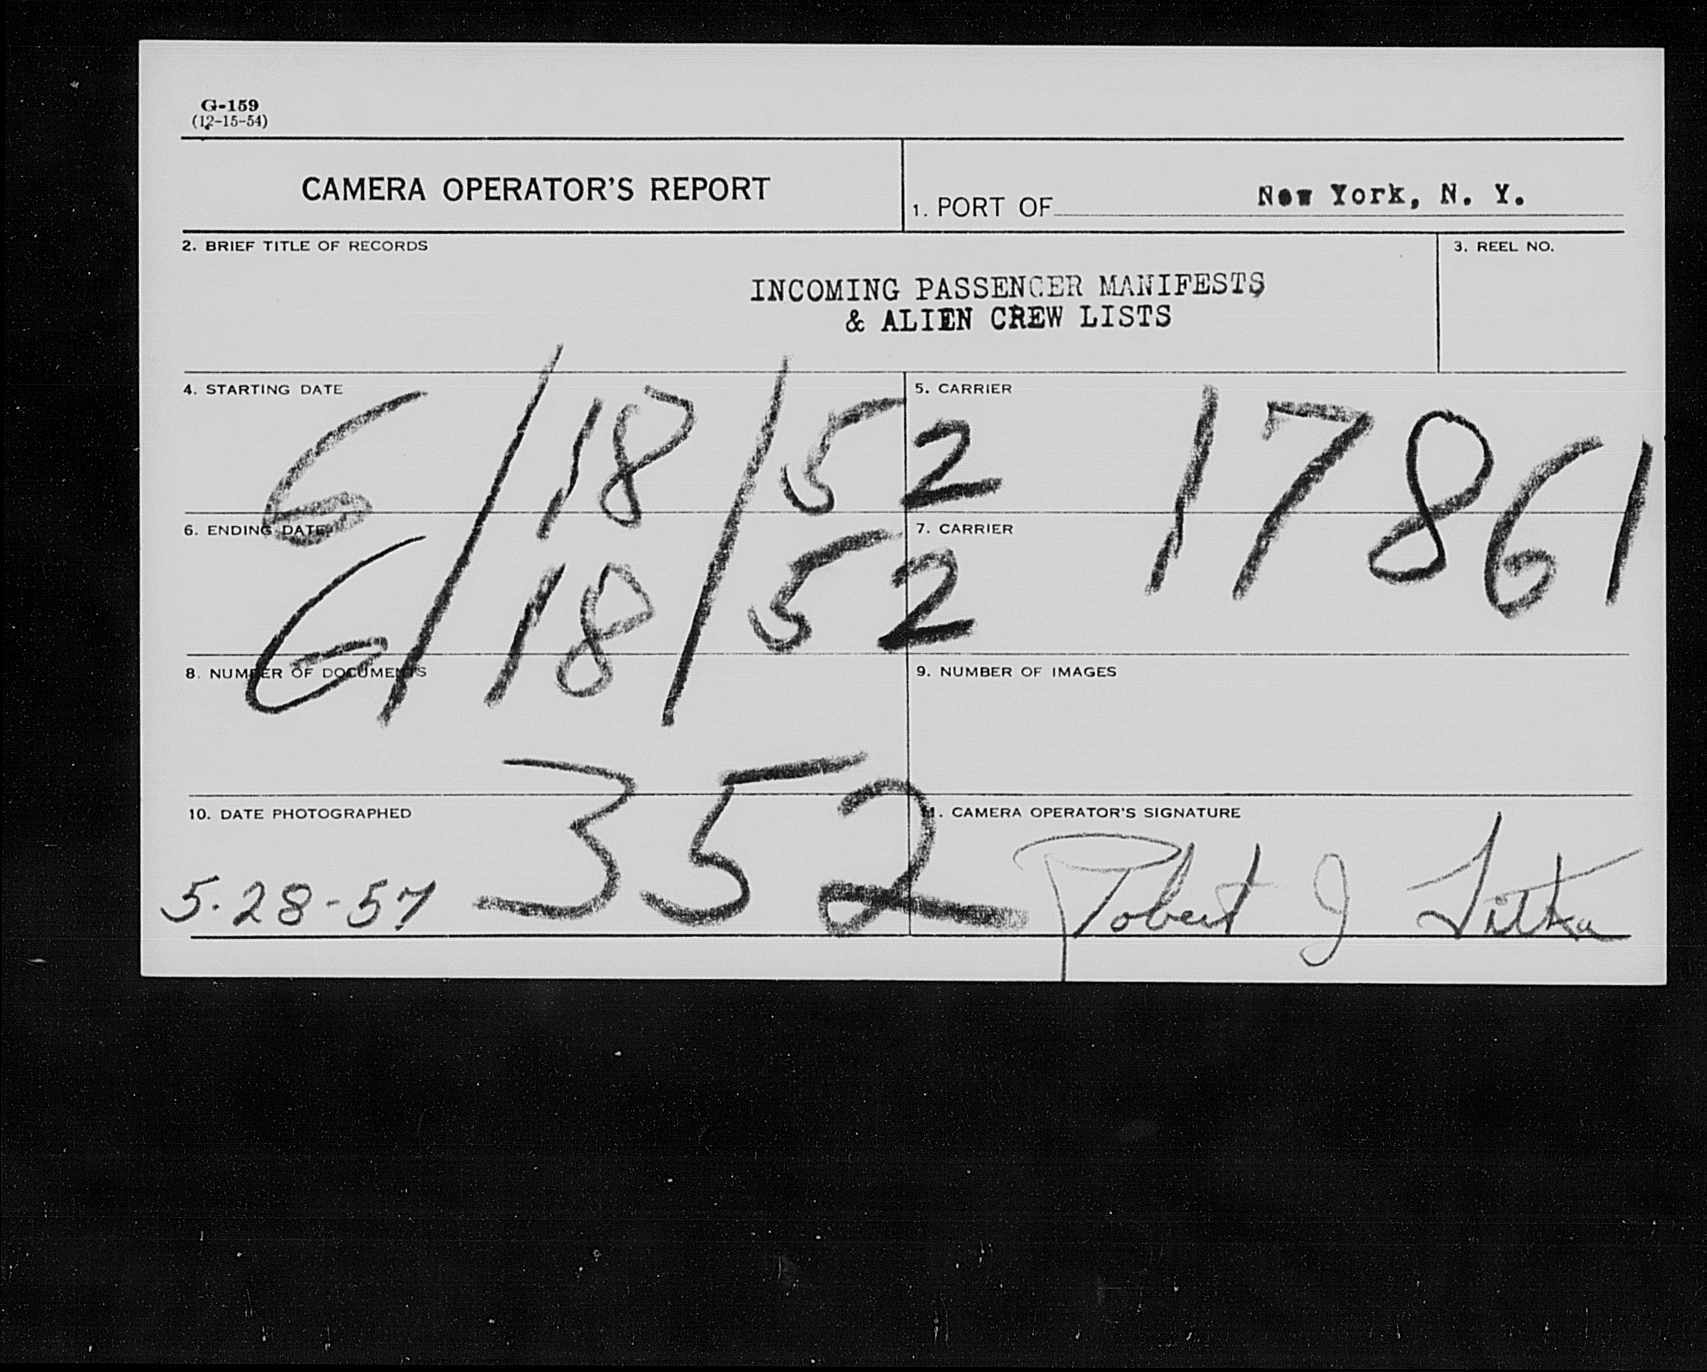 G-159
(12-15-54)
CAMERA OPERATOR'S REPORT
1. PORT OF New York, N. Y.
2. BRIEF TITLE OF RECORDS
3. REEL NO.
INCOMING PASSENGER MANIFESTS
& ALIEN CREW LISTS
4. STARTING DATE
6/18/52
5. CARRIER
17861
6. ENDING DATE
6/18/52
7. CARRIER
8. NUMBER OF DOCUMENTS
9. NUMBER OF IMAGES
352
10. DATE PHOTOGRAPHED
5-28-57
11. CAMERA OPERATOR'S SIGNATURE
Robert J